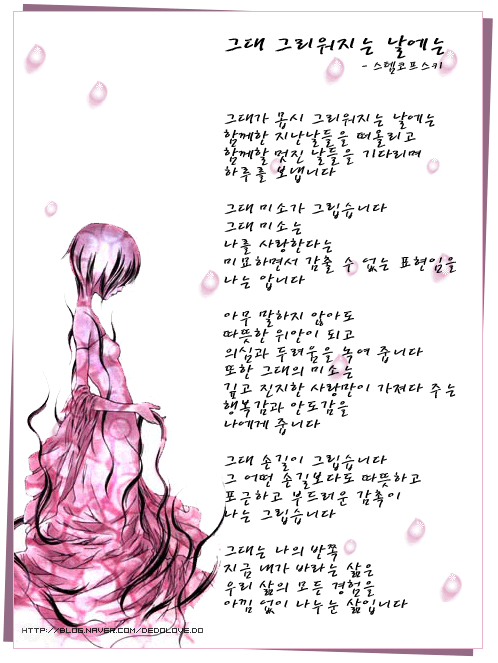 그대 그리워지는 날에는
- 스템코프스키
그대가 몹시 그리워지는 날에는
함께한 지난날들을 떠올리고
함께할 멋진 날들을 기다리며
하루를 보냅니다
그대 미소가 그립습니다
그대 미소는
나를 사랑한다는
미묘하면서 감출 수 없는 표현임을
나는 압니다
아무 말하지 않아도
따뜻한 위안이 되고
의심과 두려움을 녹여 줍니다
또한 그대의 미소는
깊고 진지한 사랑만이 가져다 주는
행복감과 안도감을
나에게 줍니다
그대 손길이 그립습니다
그 어떤 손길보다도 따뜻하고
포근하고 부드러운 감촉이
나는 그립습니다
그대는 나의 반쪽
지금 내가 바라는 삶은
우리 삶의 모든 경험을
아낌 없이 나누는 삶입니다
HTTP://BLOG.NAVER.COM/DEDOLOVE.DO